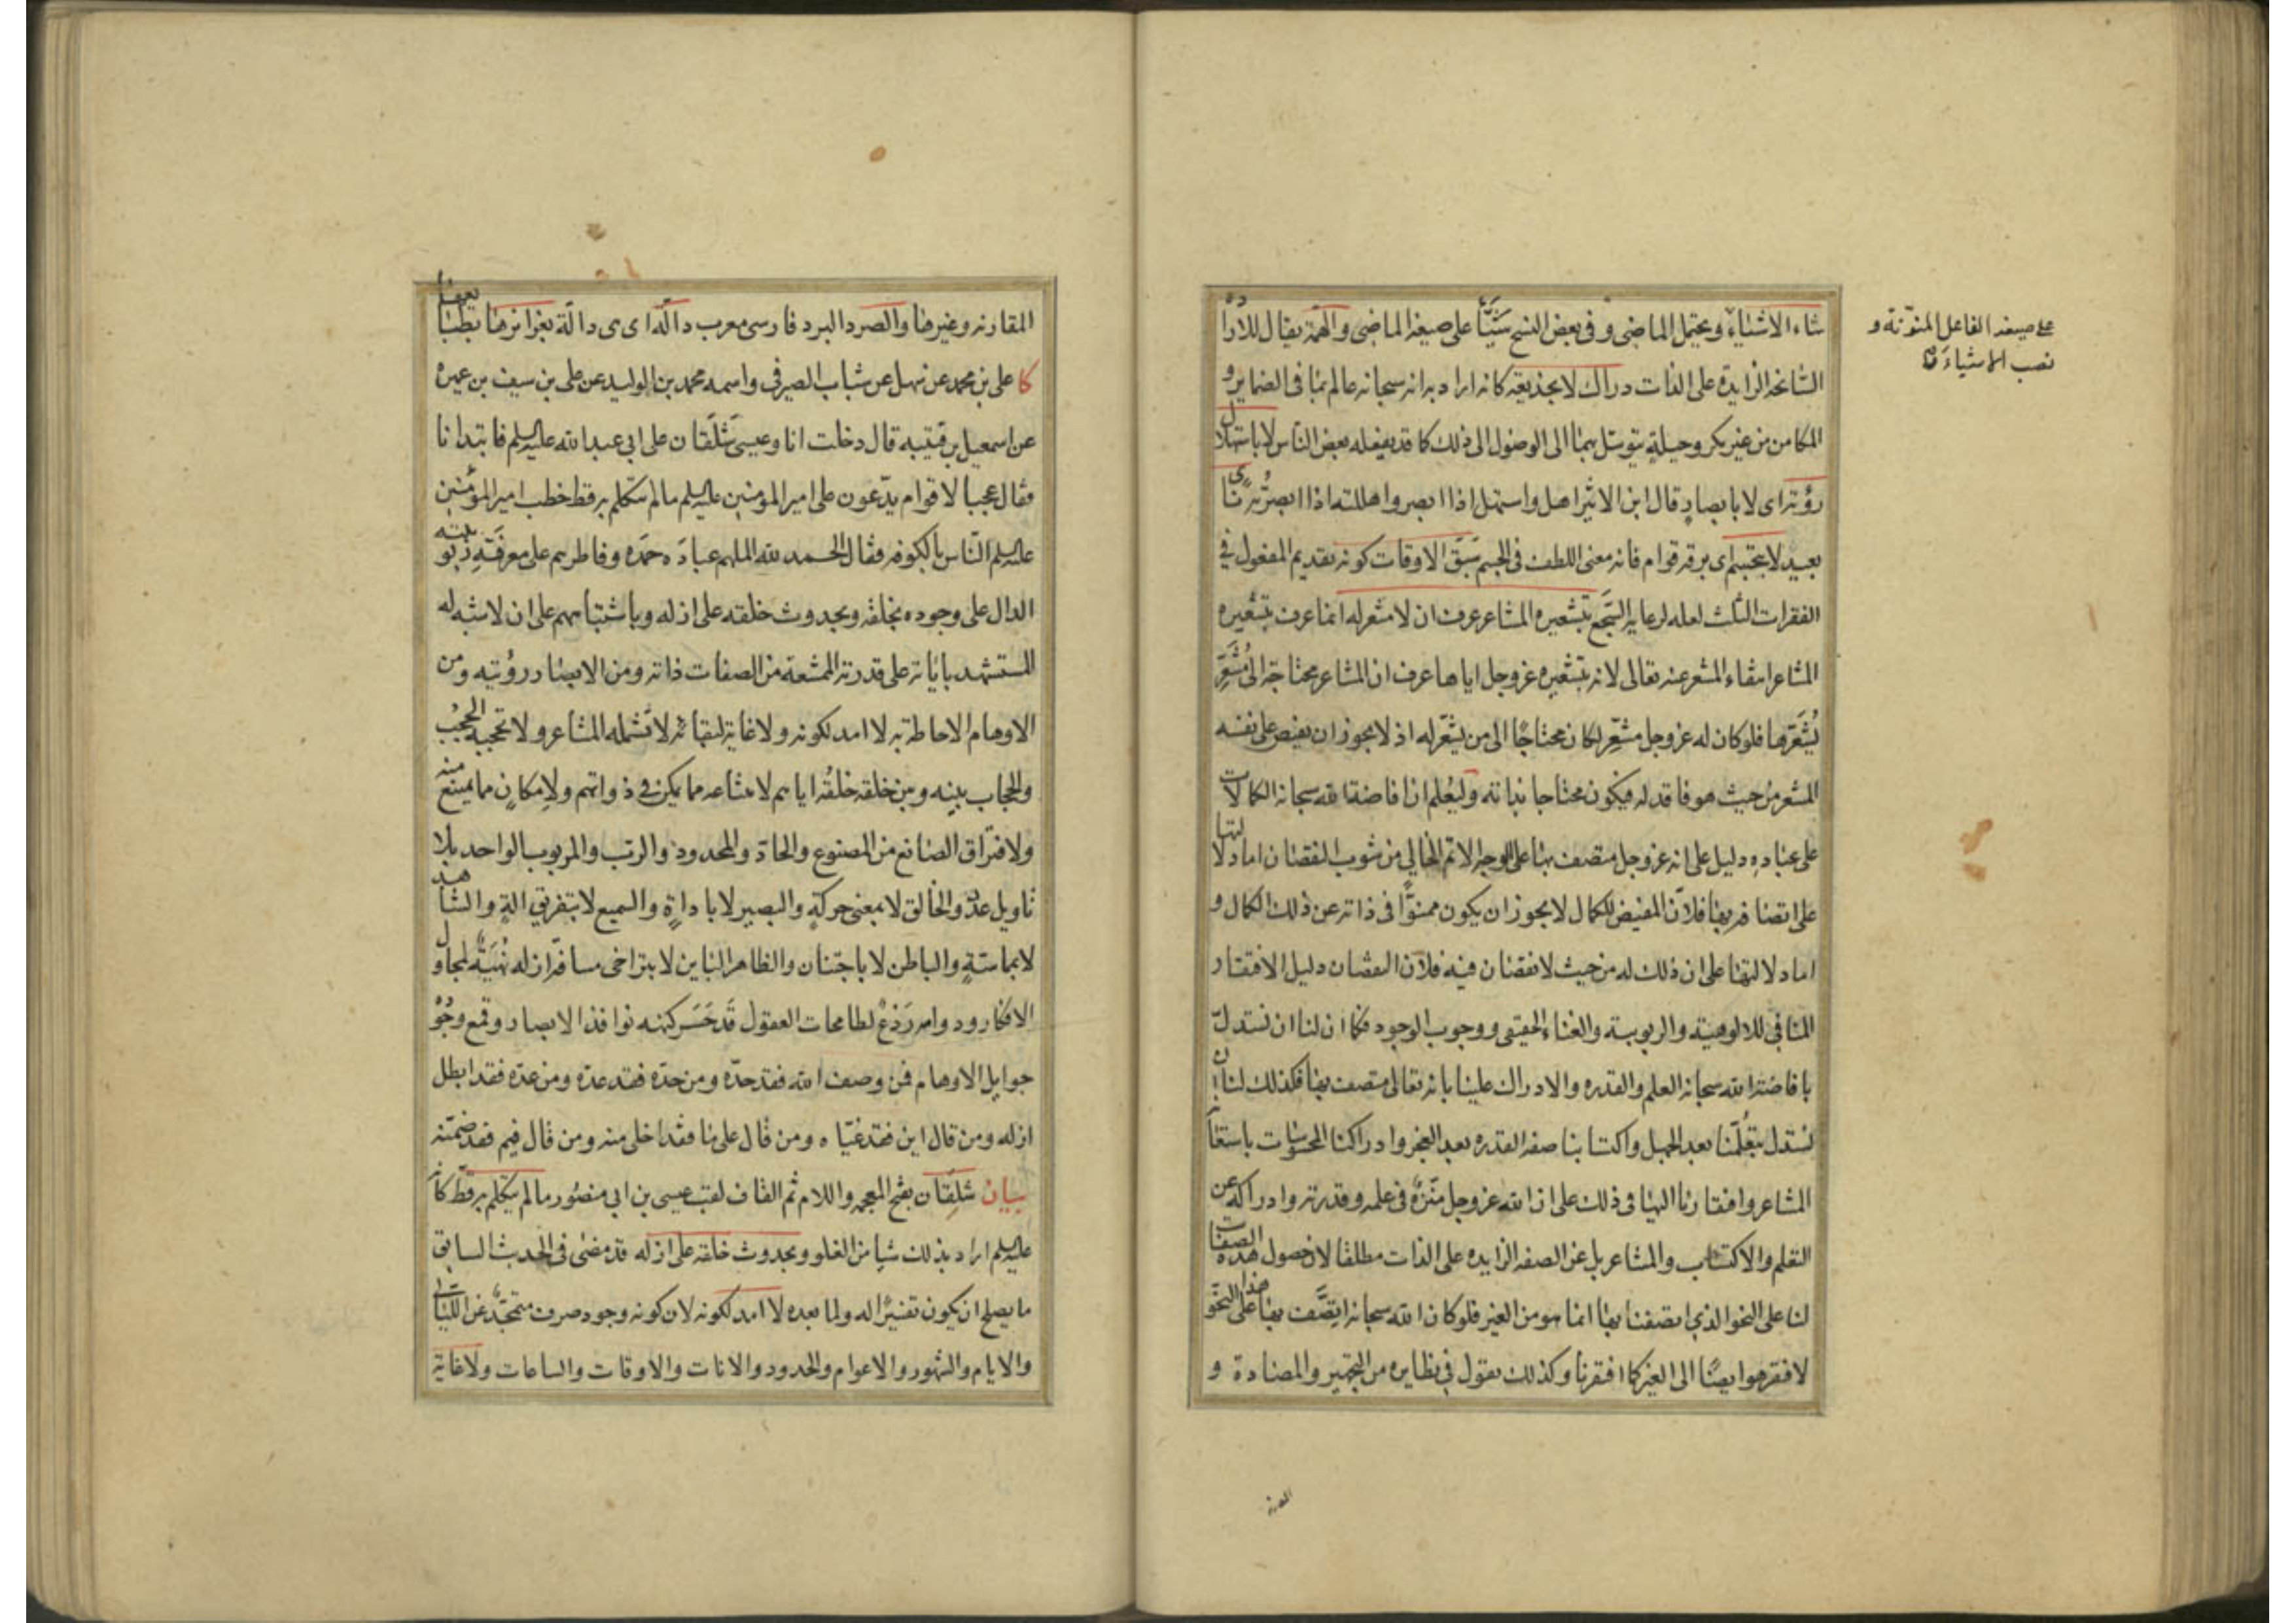 شاء الاشياء ويحتمل الماضى و فى بعض النسخ شَيَّأَ على صيغة الماضى والهمّة يقال للارادة
الشامخة الزايدة على الذات دراك لا بخديعة كانه اراد به انه سبحانه عالم بما فى الضماير و
المكامن من غير مكر وحيلة يتوسّل بهما الى الوصول الى ذلك كما قد يفعله بعض الناس لا باستهلال
رؤية اى لا بابصار قال ابن الاثير اهل واستهل اذا ابصر واهللته اذا ابصرته
بعيد لا بتجسّم اى برقة قوام فانه معنى اللطف فى الجسم سَبَقَ الاوقات كونه بتقديم المفعول فى
الفقرات الثلث لعله لرعاية السَّجَع بتشعيره المشاعر عرف ان لا مشعر له انما عرف بتشعيره
المشاعر انتفاء المشعر عنه تعالى لانه بتشعيره عز وجل اياها عرف ان المشاعر محتاجة الى مُشَعِّرٍ
يُشَعِّرها فلو كان له عز وجل مشعر لكان محتاجًا الى من يشعّر له اذ لا يجوز ان يفيض على نفسه
المشعر من حيث هو فاقد له فيكون محتاجا بذاته وليُعلم ان افاضة الله سبحانه الكمالات
على عباده دليل على انه عز وجل متصف بها على الوجه الاتم الخالى من شوب النقصان اما دلالتها
على اتصافه بها فلانّ المفيض للكمال لا يجوز ان يكون ممنوًّا فى ذاته عن ذلك الكمال و
اما دلالتها على ان ذلك له من حيث لا نقصان فيه فلانّ النقصان دليل الافتقار
المنافى للالوهية والربوبية والغناء الحقيقى ووجوب الوجود فكما ان لنا ان نستدلّ
بافاضة الله سبحانه العلم والقدره والادراك علينا بانه تعالى متصف بها فكذلك لنا ان
نستدل بتعلّمنا بعد الجهل واكتسابنا صفة القدره بعد العجز وادراكنا المحسوسات باستعانة
المشاعر وافتقارنا اليها فى ذلك على ان الله عز وجل منزّه فى علمه وقدرته وادراكه عن
التعلم والاكتساب والمشاعر بل عن الصفه الزايده على الذات مطلقا لان حصول هذه الصفات
لنا على النحو الذى اتصفنا بها انما هو من الغير فلو كان الله سبحانه اتصف بها على هذا النحو
لافتقر هو ايضًا الى الغير كما افتقرنا وكذلك نقول فى نظايره من التجهير والمضادة و
على صيغة الفاعل المنوّنة و
نصب الاشياء
المقارنه وغيرها والصرد البرد فارسى معرب دالّة اى هى دالّة بغرائزها
كا على بن محمد عن سهل عن شباب الصيرفى واسمه محمد بن الوليد عن على بن سيف بن عميره
عن اسمعيل بن قتيبه قال دخلت انا وعيسى شَلَقان على ابى عبد الله عليه السلم فابتدانا
فقال عجبا لاقوام يدّعون على امير المؤمنين عليه السلم ما لم يتكلم به قط خطب امير المؤمنين
عليه السلم النّاس بالكوفه فقال الحمد لله الملهم عباده حَمدَه وفاطرهم على معرفة ربوبيته
الدال على وجوده بخلقه وبحدوث خلقه على ازله وباشتباههم على ان لا شبه له
المستشهد باياته على قدرته الممتنعة من الصفات ذاته ومن الابصار رؤيته ومن
الاوهام الاحاطة به لا امد لكونه ولا غاية لبقائه لا تشمله المشاعر ولا تحجبه الحجب
والحجاب بينه وبين خلقه خلقُه اياهم لامتناعه مما يمكن فى ذواتهم ولامكانٍ مما يمتنع منه
ولافتراق الصانع من المصنوع والحادّ والمحدود والرب والمربوب الواحد بلا
تاويل عدد والخالق لا بمعنى حركةٍ والبصير لا باداةٍ والسميع لا بتفريق الةٍ والشاهد
لا بمماسّةٍ والباطن لا باجتنان والظاهر الباين لا بتراخى مسافة ازله نُهيَةٌ لمجاول
الافكار ودوامه رَدْعٌ لطامحات العقول قد حَسَر كنهه نوافذ الابصار وقمع وجُودُه
جوايل الاوهام فمن وصف الله فقد حدّه ومن حدّه فقد عدّه ومن عدّه فقد ابطل
ازله ومن قال اين فقد غيّاه ومن قال على ما فقد اخلى منه ومن قال فيم فقد ضمّنه
بيان شَلَقَان بفتح المعجمه واللام ثم القاف لقب عيسى بن ابى منصور ما لم يتكلّم به قطّ كانه
عليه السلم اراد بذلك شيا من الغلو وبحدوث خلقه على ازله قد مضى فى الحديث السابق
ما يصلح ان يكون تفسيرًا له ولما بعده لا امد لكونه لان كونه وجود صرف متجدّد عن الليالى
والايام والشهور والاعوام والحدود والانات والاوقات والساعات ولا غاية